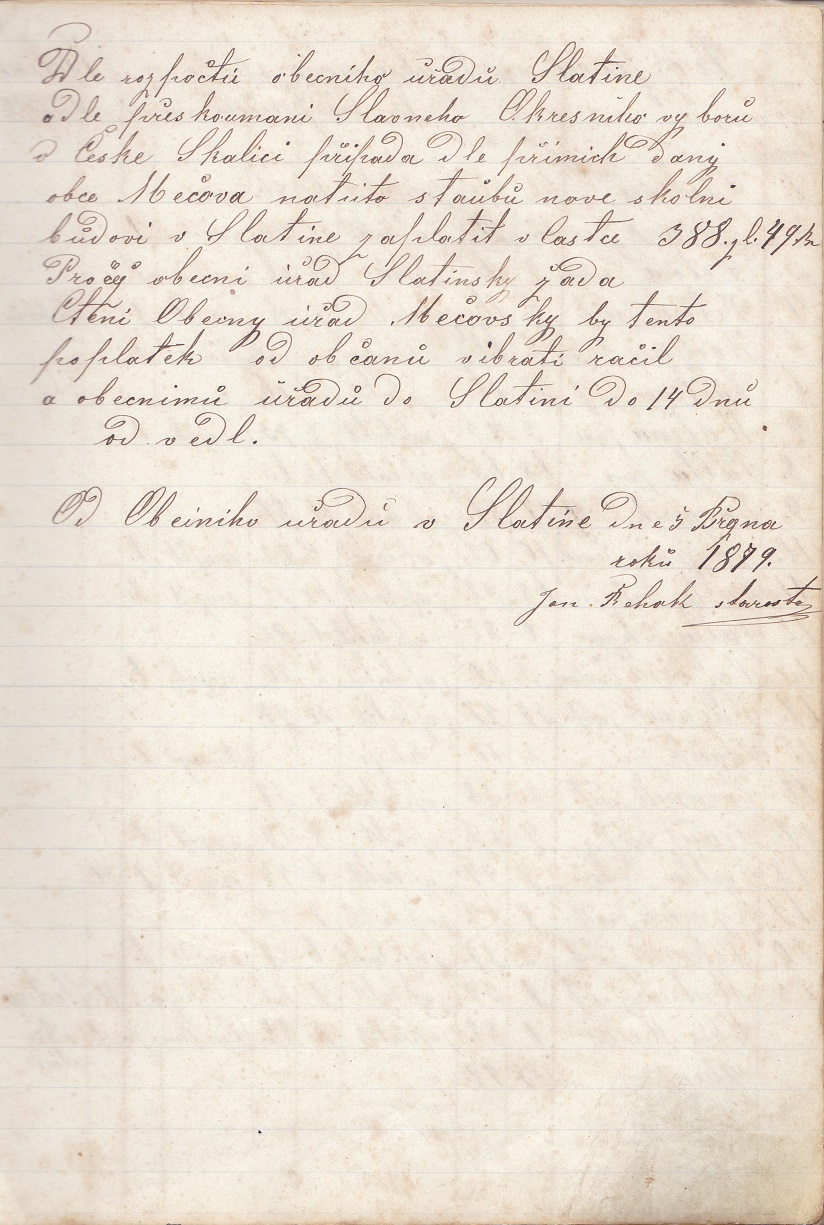 Dle rozpočtů obecniho uřadů Slatine
a dle přeskoumani Slavneho Okresniho vyborů
v České Skalici připada dle přimich dany
obce Mečova natůto staůbů nove skolni
bůdovi v Slatine zaplatit v častce 388. zl. 49 kr
Pročež obecni uřad Slatinsky žada
Ctěni Obecny uřad Mečovsky by tento
poplatek od občanů vibrati račil
a obecnimů uřadů do Slatini do 14 dnů
odvedl.
Od Obciniho uřadů v Slatine dne 5 Řigna
roků 1879.
Jan Řehak starosta